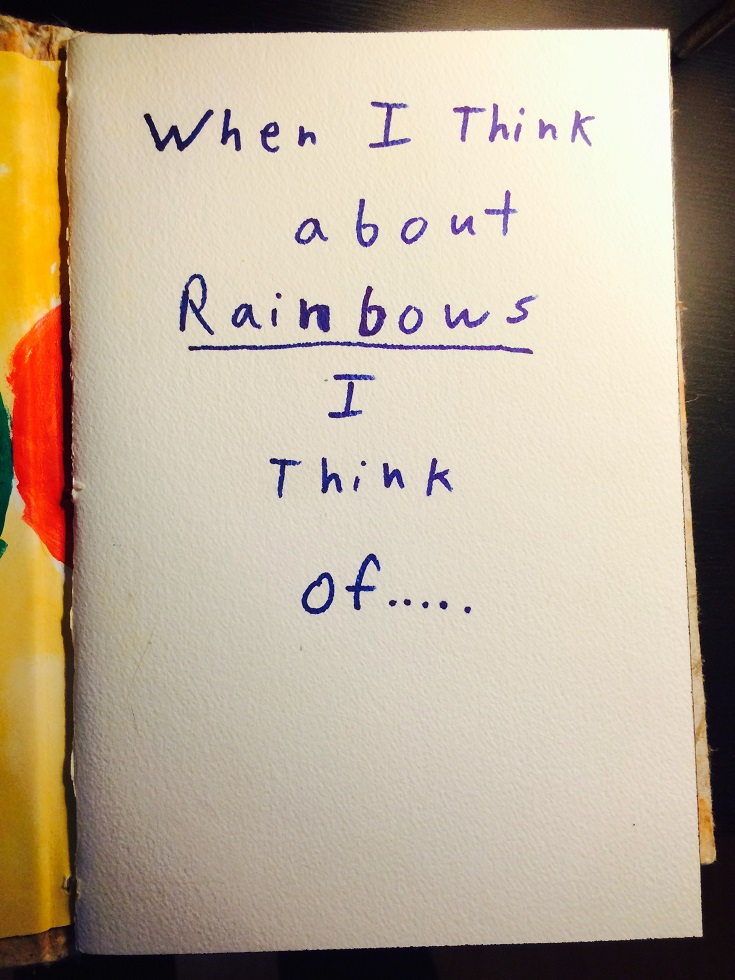 When I Think
about
Rainbows
I
Think
of.....